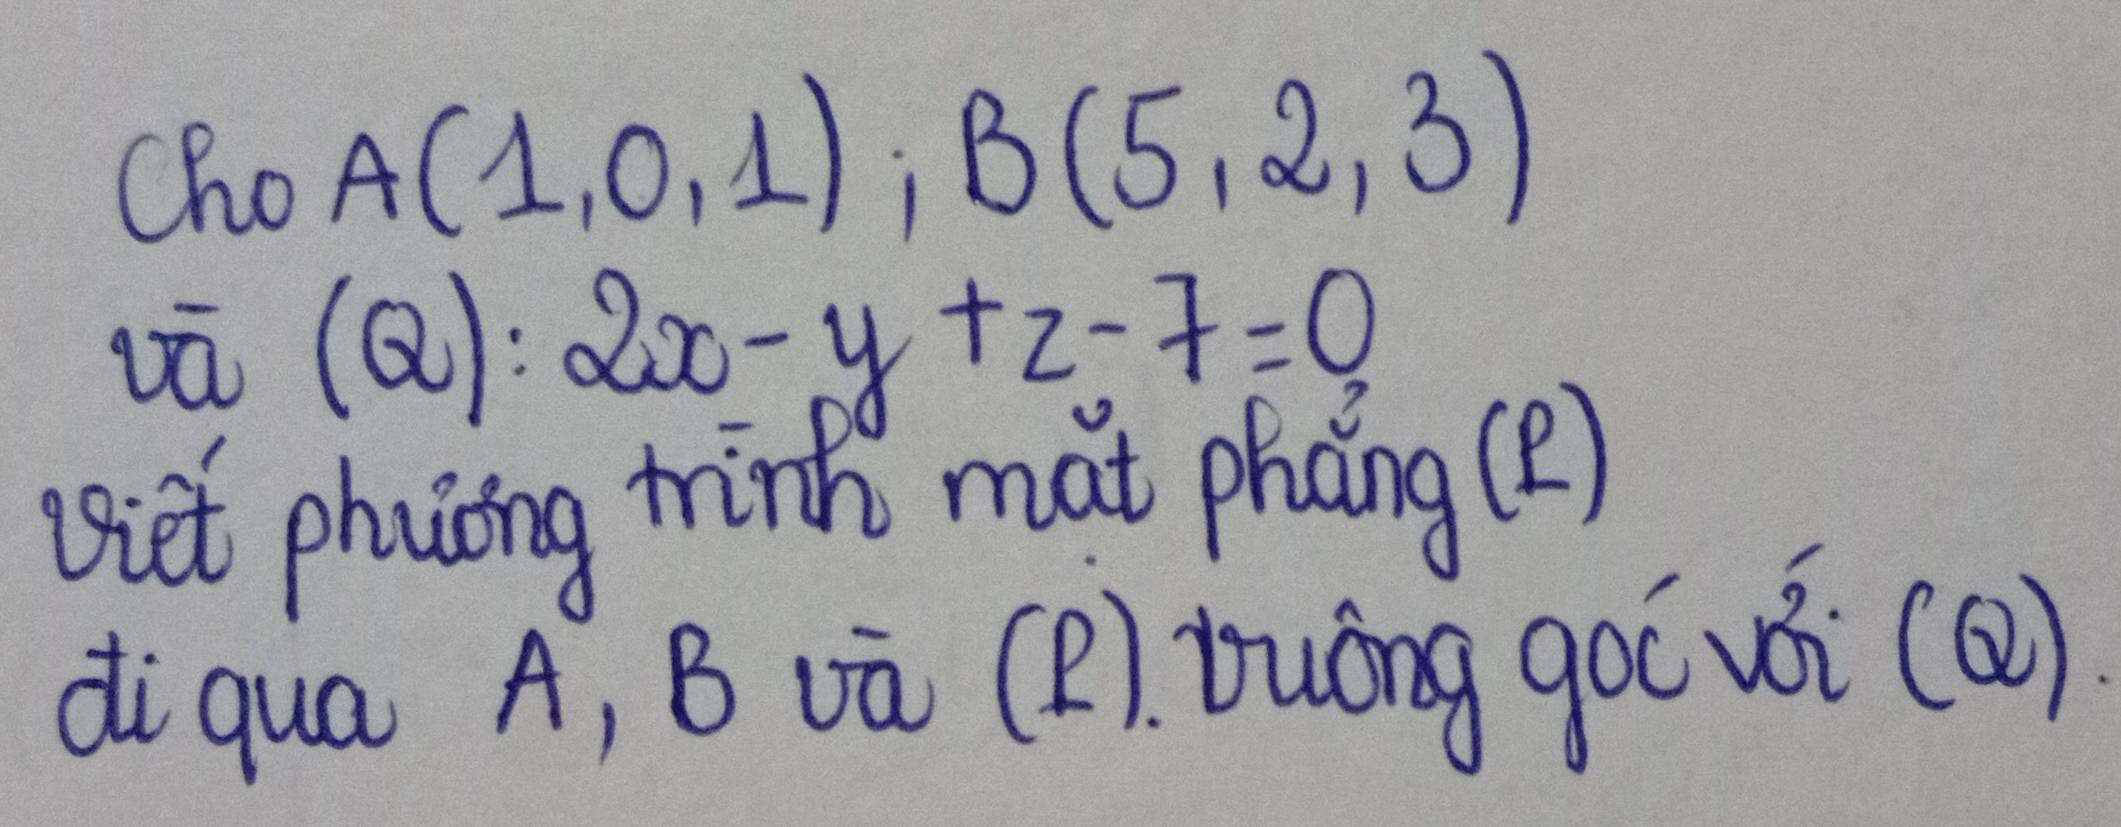 Cho A(1,0,1); B(5,2,3)
và (Q): 2x - y + z - 7 = 0
viết phương trình mặt phẳng (P)
đi qua A, B và (P). vuông góc với (Q).